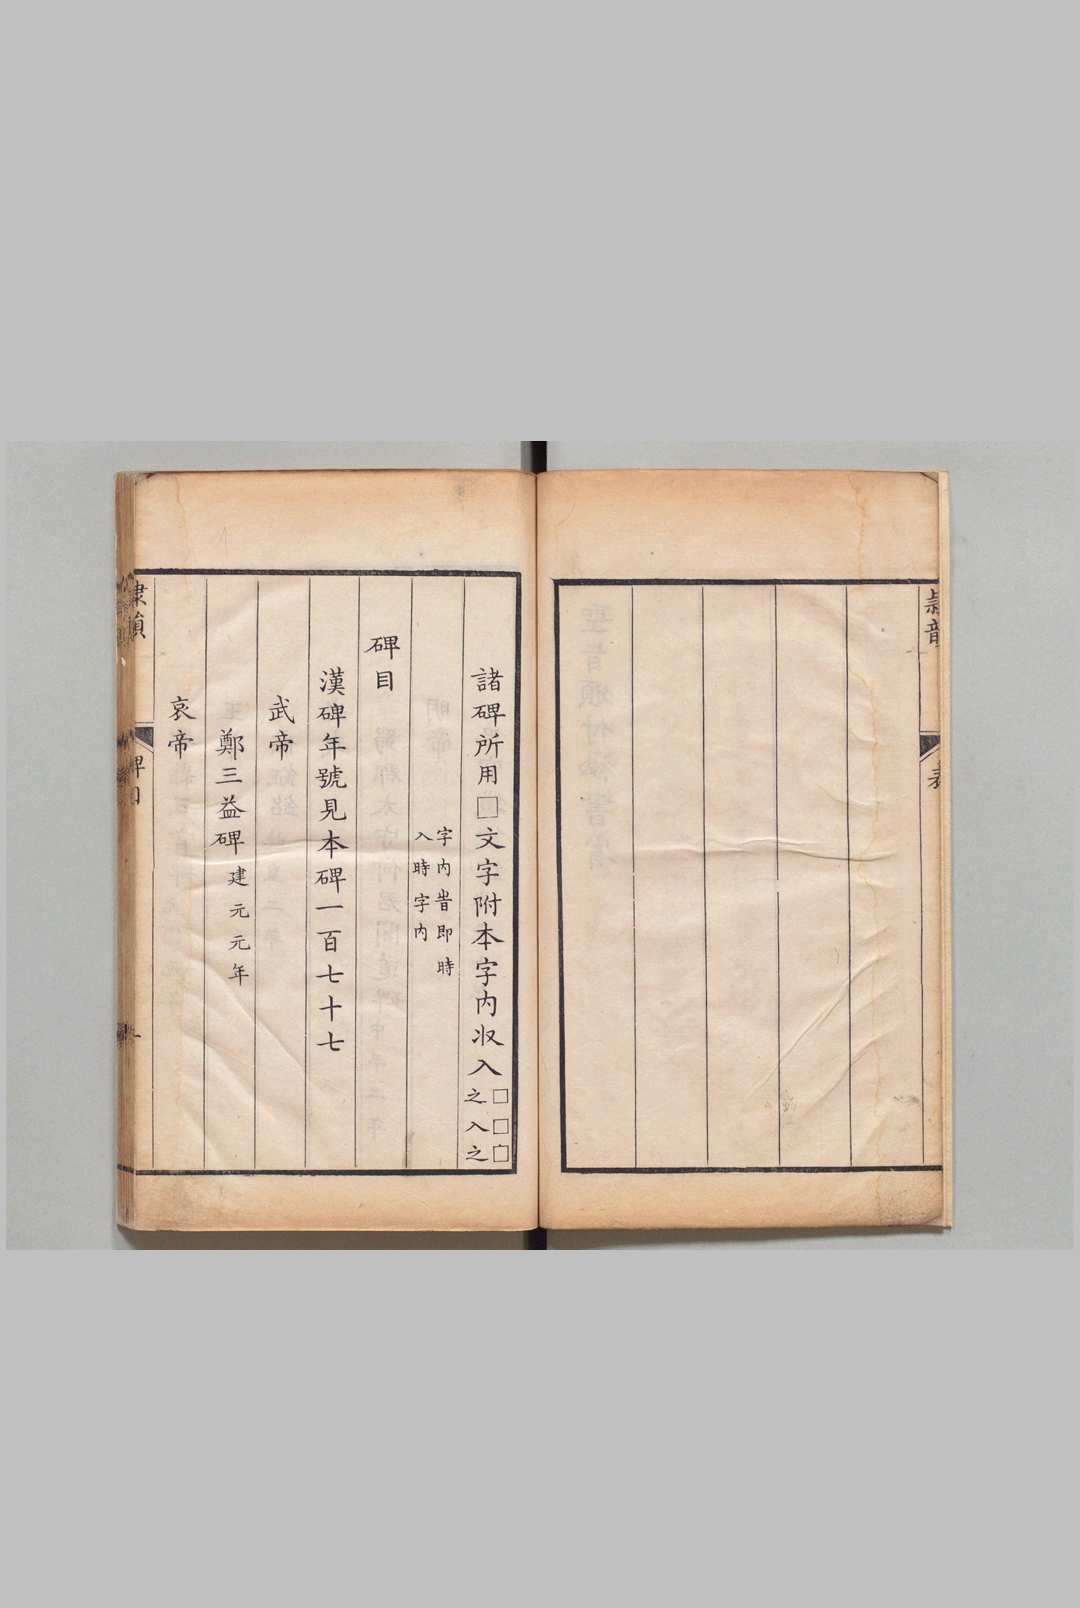 諸碑所用□文字附本字內收入□之□入□之
字內旹即時
入時字內
碑目
漢碑年號見本碑一百七十七
武帝
鄭三益碑建元元年
哀帝
碑目